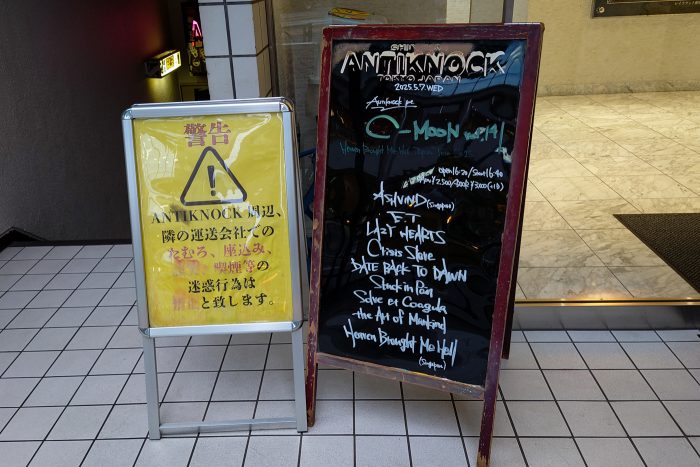 警告
ANTIKNOCK 周辺、
隣の運送会社での
たむろ、座込み、
喫煙等の
迷惑行為は
禁止と致します。
ANTIKNOCK
TOKYO JAPAN
2025.5.7. WED
Antiknock pre
C-MOON vol.14
Heaven Brought Me Hell Japan Tour
open 16:20/start 16:40
ASHVIND (Singapore)
F.T
LAZY HEARTS
Crisis Slave
DATE BACK TO DAWN
Stuck in Pan
Solve et Coagula
the Art of Mankind
Heaven Brought Me Hell
(Singapore)